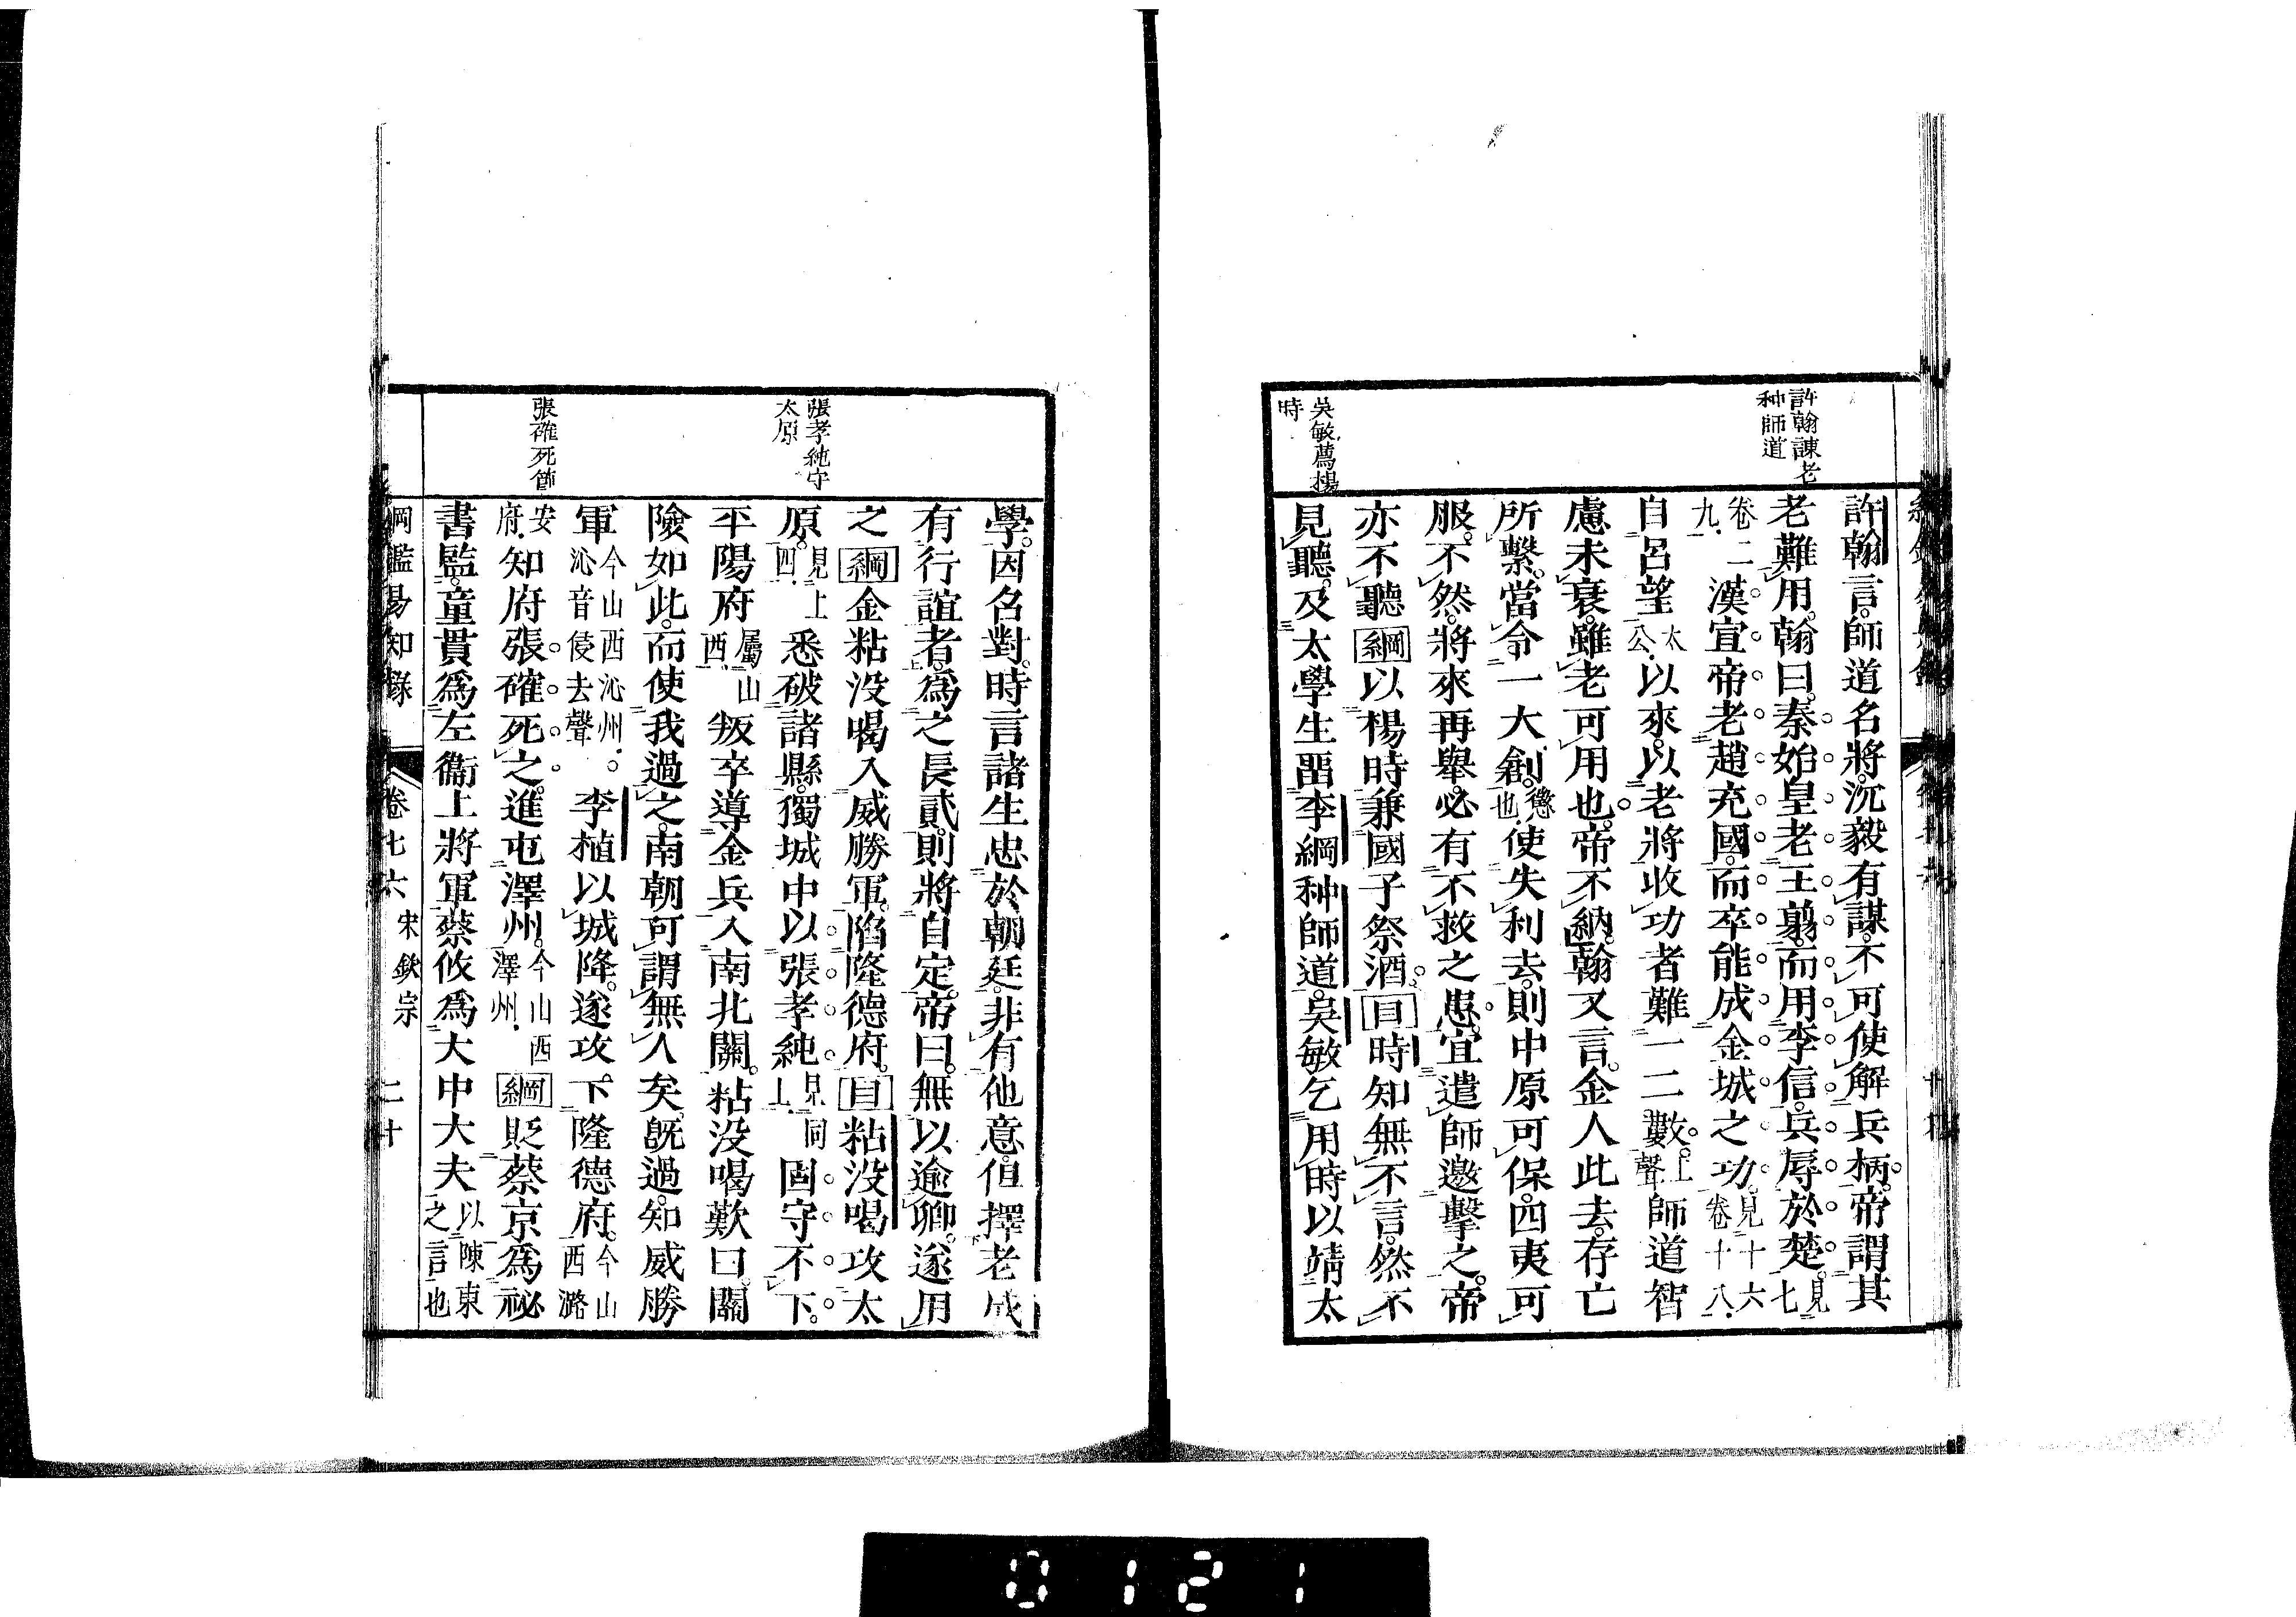 許翰諫老
种師道
吳敏薦楊
時
許翰言。師道名將。沉毅有謀。不可使解兵柄。帝謂其
老難用。翰曰。秦始皇老王翦。而用李信。兵辱於楚。見七
卷二九。漢宣帝老趙充國。而卒能成金城之功。見十六卷十八。
自呂望太公以來。以老將收功者難一二數。上聲師道智
慮未衰。雖老可用也。帝不納。翰又言。金人此去。存亡
所繫。當令一大創。懲也。使失利去。則中原可保。四夷可
服。不然。將來再舉。必有不救之患。宜遣師邀擊之。帝
亦不聽 綱 以楊時兼國子祭酒。目 時知無不言。然不
見聽。及太學生畱李綱种師道。吳敏乞用時以靖太
張孝純守
太原
張確死節
學。因名對。時言諸生忠於朝廷。非有他意。但擇老成
有行誼者。爲之長貳。則將自定。帝曰。無以逾卿。遂用
之 綱 金粘没喝入威勝軍。陷隆德府。目 粘没喝攻太
原。見上四。悉破諸縣。獨城中以張孝純見同上。固守不下。
平陽府屬山西。叛卒導金兵入南北關。粘没喝歎曰。關
險如此。而使我過之。南朝可謂無人矣。旣過。知威勝
軍今山西沁州。沁音侵去聲。李植以城降。遂攻下隆德府。今山西潞
安府。知府張確死之。進屯澤州。今山西澤州。綱 貶蔡京爲祕
書監。童貫爲左衞上將軍。蔡攸爲大中大夫以陳東之言也
綱鑑易知錄 卷七六 宋欽宗 二十
0121